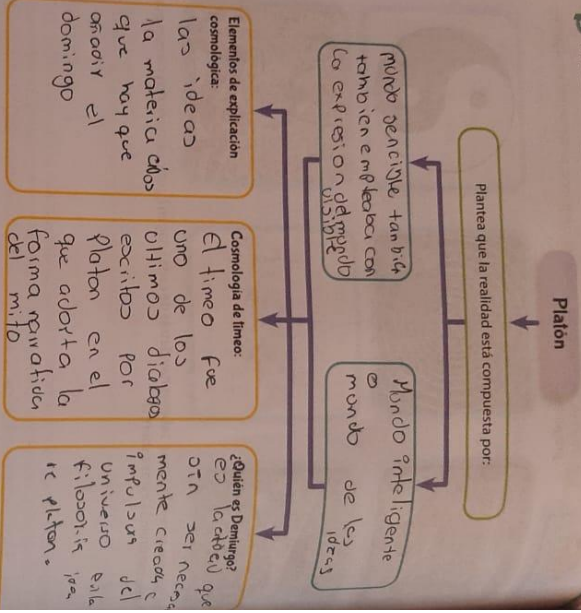 Platón
Plantea que la realidad está compuesta por:
mundo sencible tambien
tambien empleaba con
la expresion del mundo
visible
Mundo inteligente
o
mundo de las
ideas
Elementos de explicación
cosmológica:
las ideas
la materia caos
que hay que
añadir el
domingo
Cosmología de timeo:
El timeo fue
uno de los
ultimos dialogos
escritos por
Platon en el
que adopta la
forma narrativa
del mito
¿Quién es Demiurgo?
es que
sin ser
mente creada
impulsora del
universo en la
filosofia
platon.